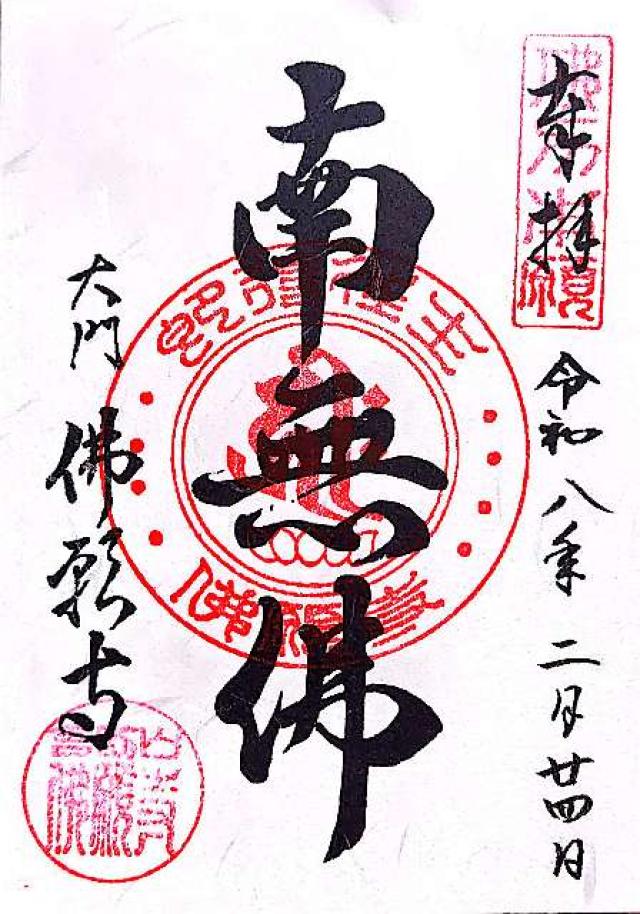 奉拝
令和八年二月廿四日
南無佛
大門
佛願寺